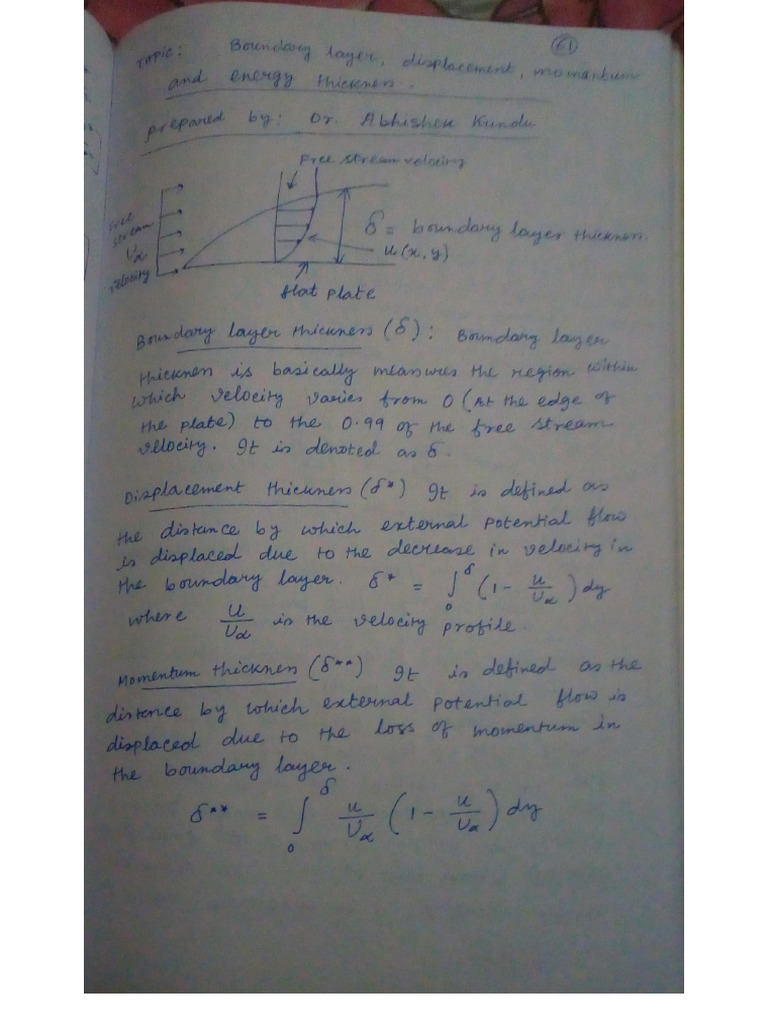 61
Topic: Boundary layer, displacement, momentum
and energy thickness.
prepared by: Dr. Abhishek Kundu
Free stream velocity
Free
stream
U∝
velocity
δ = boundary layer thickness.
u(x, y)
flat plate
Boundary layer thickness (δ): Boundary layer
thickness is basically measures the region within
which velocity varies from 0 (At the edge of
the plate) to the 0.99 of the free stream
velocity. It is denoted as δ.
Displacement thickness (δ*) It is defined as
the distance by which external potential flow
is displaced due to the decrease in velocity in
the boundary layer. δ* = ∫₀^δ (1 - u/U∝) dy
where u/U∝ is the velocity profile.
Momentum thickness (δ**) It is defined as the
distance by which external potential flow is
displaced due to the loss of momentum in
the boundary layer.
δ** = ∫₀^δ u/U∝ (1 - u/U∝) dy